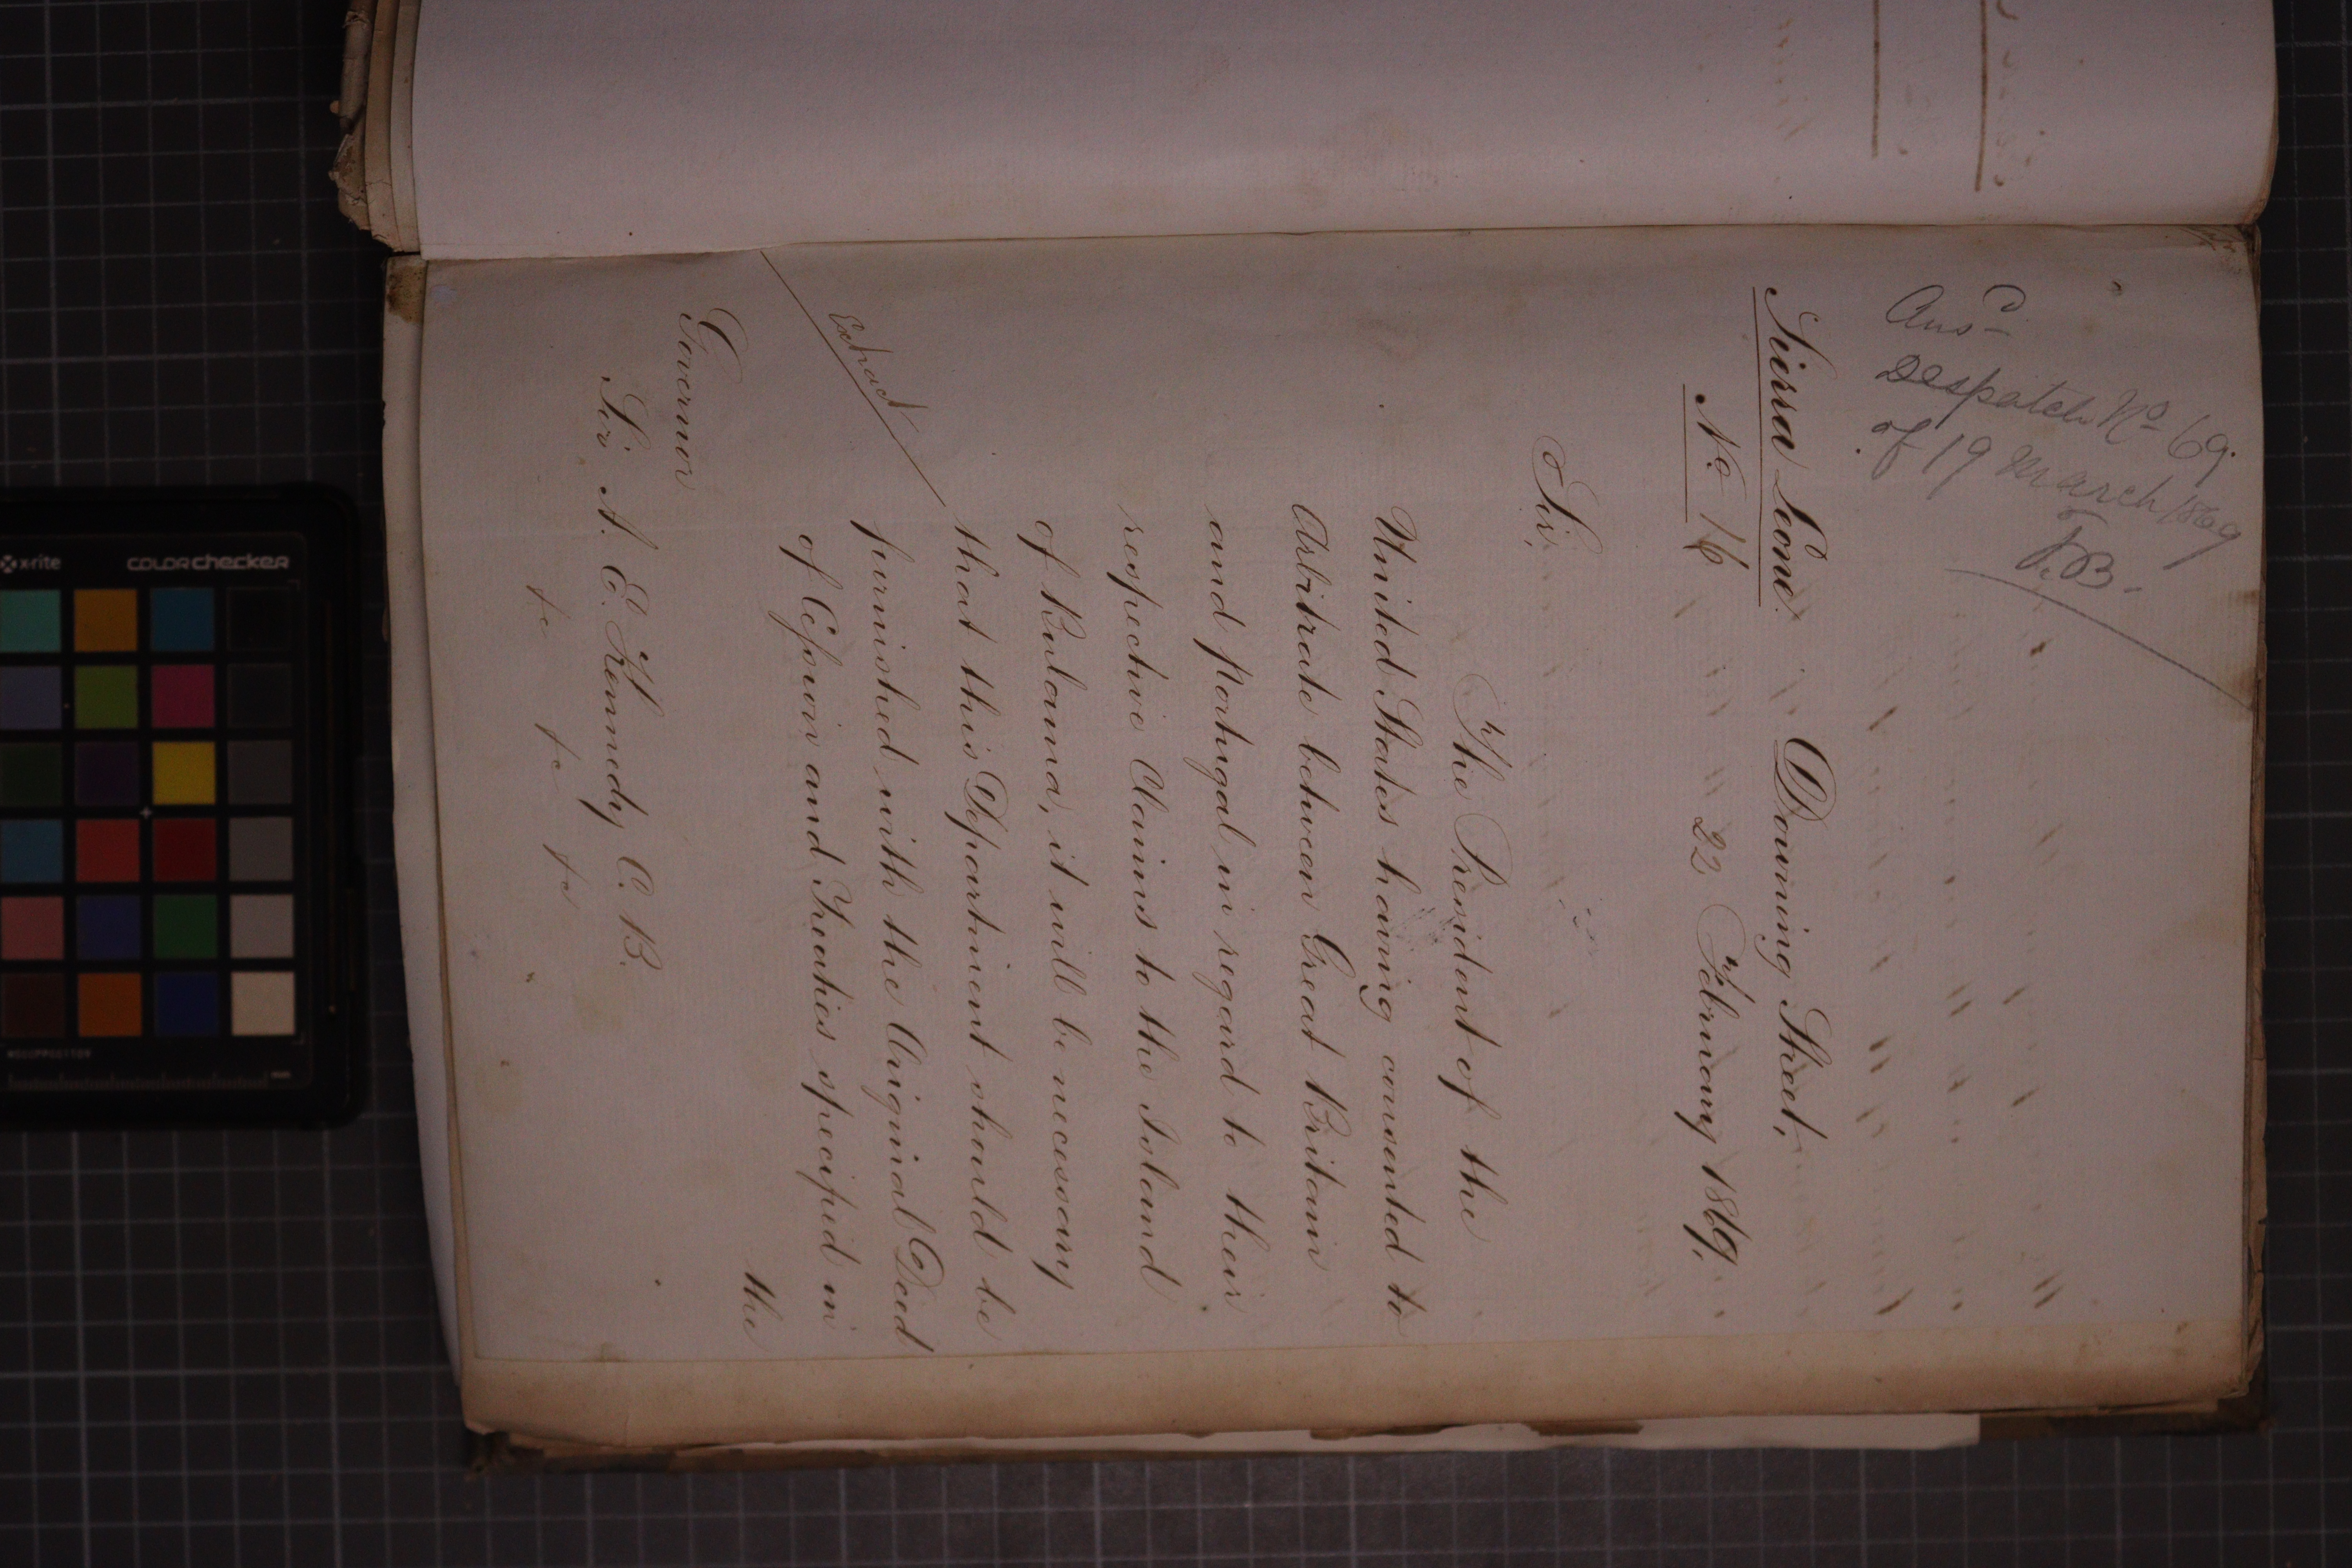 Ansd
Despatch No 69.
of 19 March 1869
Sierra Leone.
No 16
Downing Street,
22 February 1869.
Sir,
The President of the
United States having consented to
Arbitrate between Great Britain
and Portugal in regard to their
respective Claims to the Island
of Bulama, it will be necessary
that this Department should be
furnished with the Original Deed
of Cession and Treaties specified in
the
Extract
Governor
Sir A. E. Kennedy C. B.
&c &c &c
x-rite
colorchecker